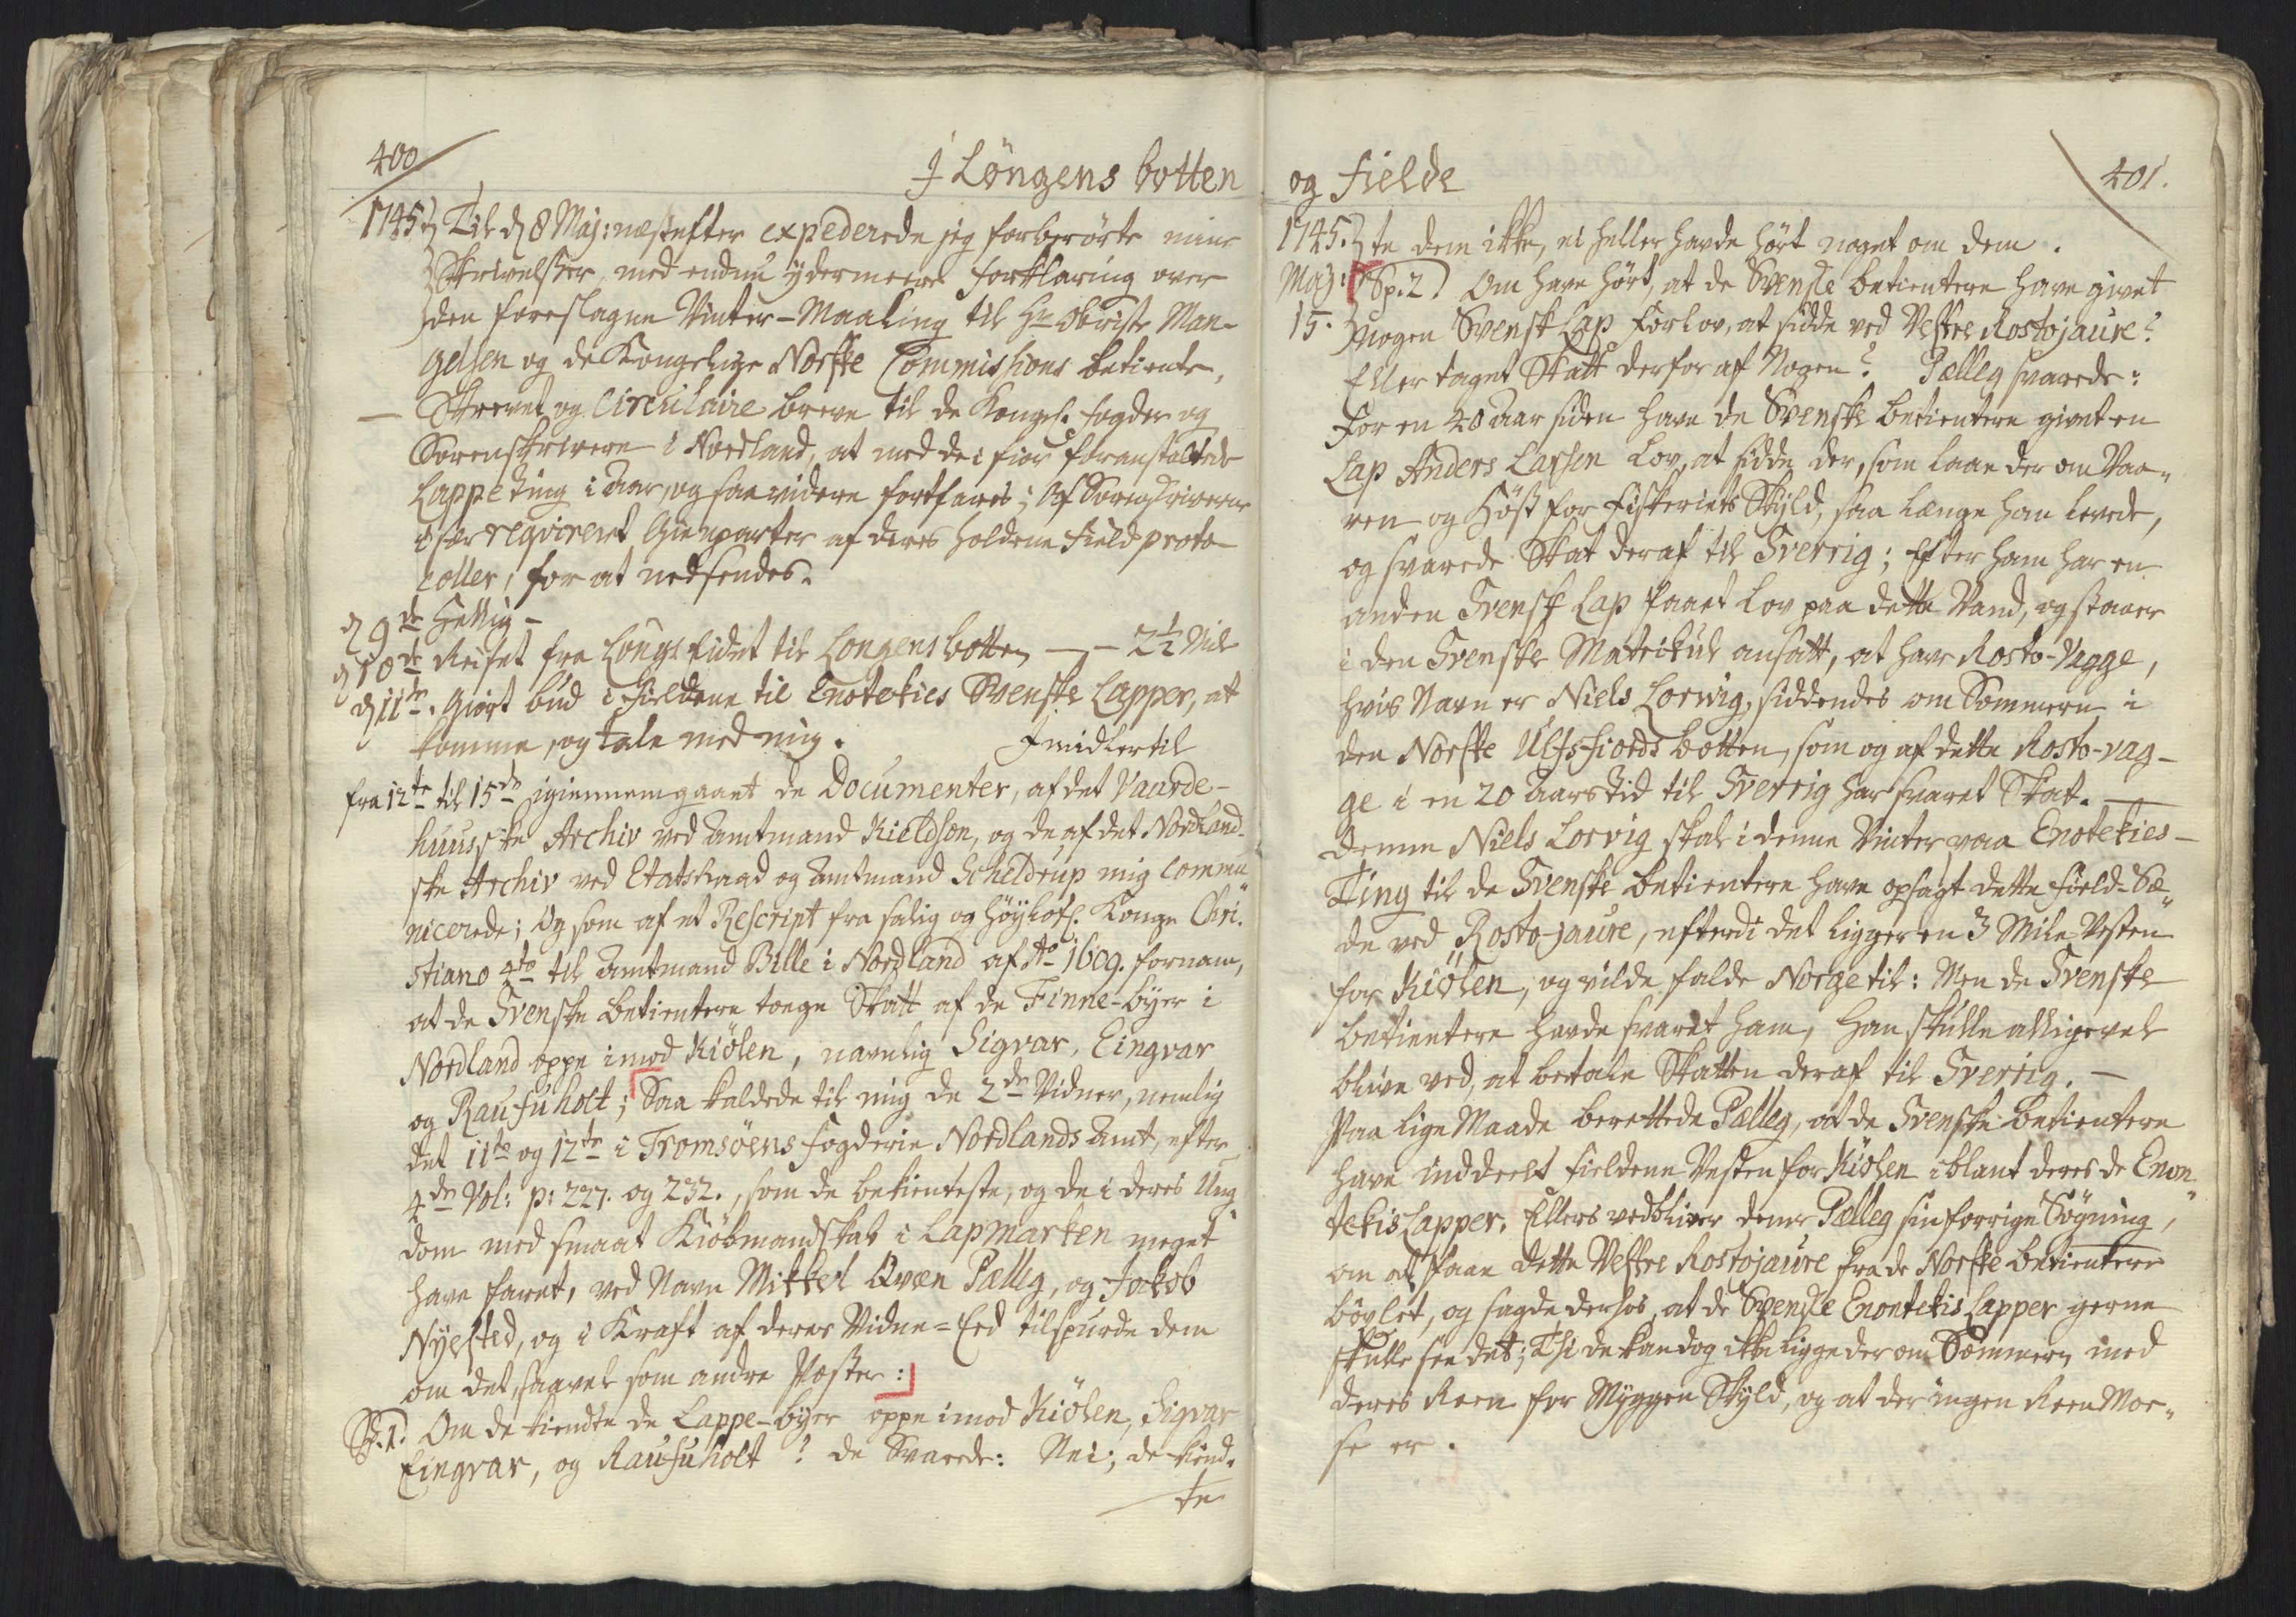 400
I Löngens botten
1745. Til d 8 Maj: næstefter expederede jeg forberörte mine
Skrivelser, med endnu ydermeere forklaring over
den foreslagne Vinter-Maaling til Hr Obriste Man-
gelsen og de Kongelige Norske Commissions betiente,
— Skrevet og Circulaire breve til de Kongel. fogder og
Sorenskrivere i Nordland, at med de i fior foranstaltede
Lappe ting i Aar, og saa videre fortfares; Af Sorenskriverne
især reqvireret Gienparter af deres holdene Field proto-
coller, for at nedsendes.
d 9de Hellig-
d 10de Reiset fra Lyngs Eidet til Longens botten — - 2½ Mile
d 11te. Giort bud i Fieldene til Enotekies Svenske Lapper, at
komme, og tale med mig. Imidlertil
fra 12te til 15de igiennemgaaet de Documenter, af det Vaarde-
huusske Archiv ved Amtmand Kieldson, og de af det Nordland-
ske Archiv ved Etatsraad og Amtmand Scheldrup mig commu-
nicerede; Og som af et Rescript fra salig og høylofl. Konge Chri-
stiano 4to til Amtmand Bille i Nordland af Ao 1609. fornam,
at de Svenske betientere toege Skatt af de Finne-byer i
Nordland oppe imod Kiölen, navnlig Sigvar, Eingvar
og Raufuholt; Saa kaldede til mig de 2de Vidner, nemlig
det 11te og 12te i Tromsöens fogderie Nordlands Amt, efter
4de Vol: p: 227. og 232., som de bekienteste, og de i deres Ung-
dom med smaat Kiöbmandskab i Lapmarken meget
have faret, ved Navn Mikkel Qvæn Pælleg, og Jokob
Nyested, og i Kraft af deres Vidne-Eed tilspurde dem
om det, saavel som andre Poster:
Sp. 1. Om de kiendte de Lappe-byer oppe imod Kiölen, Sigvar
Eingvar, og Raufuholt? de Svarede: Nei; de kiend-
te
og Fielde
401.
1745. te dem ikke, ei heller havde hört noget om dem.
Maj: Sp. 2. Om have hört, at de Svenske betientere have givet
15. nogen Svensk Lap Forlov, at sidde ved Vestre Rostojaure?
Eller taget Skatt derfor af Nogen? Pælleg svarede:
For en 40 Aar siden have de Svenske betientere givet en
Lap Anders Larsen Lov, at sidde der, som laae der om Vaa-
ren og Höst for Fiskeriets Skyld, saa længe han levede,
og svarede Skat deraf til Sverrig; Efter ham har en
anden Svensk Lap faaet Lov paa dette Vand, og staaer
i den Svenske Matrikul ansatt, at have Rosto-Vagge,
hvis Navn er Niels Lorvig, siddendes om Sommeren i
den Norske Ulfsfiords botten, som og af dette Rosto-vag-
ge i en 20 Aars Tid til Sverrig har svaret Skat. —
Denne Niels Lorvig skal i denne Vinter paa Enotekies-
Ting til de Svenske betientere have opsagt dette Field-Sæ-
de ved Rosto-jaure, efterdi det ligger en 3 Mile Vesten
for Kiölen, og vilde falde Norge til: Men de Svenske
betientere havde svaret ham, Han skulle alligevel
blive ved, at betale Skatten deraf til Sverrig. —
Paa lige Maade berettede Pælleg, at de Svenske betientere
have inddeelt Fieldene Vesten for Kiölen iblant deres de Enon-
tekis Lapper. Ellers vedbliver denne Pælleg sin forrige Sögning,
om at faae dette Vestre Rostojaure fra de Norske betientere
böxlet, og sagde derhos, at de Svenske Enontekis Lapper gerne
skulle see det; Thi de kand og ikke ligge der om Sommeren med
deres Reen for Myggen Skyld, og at der ingen Reen Mos-
se er.